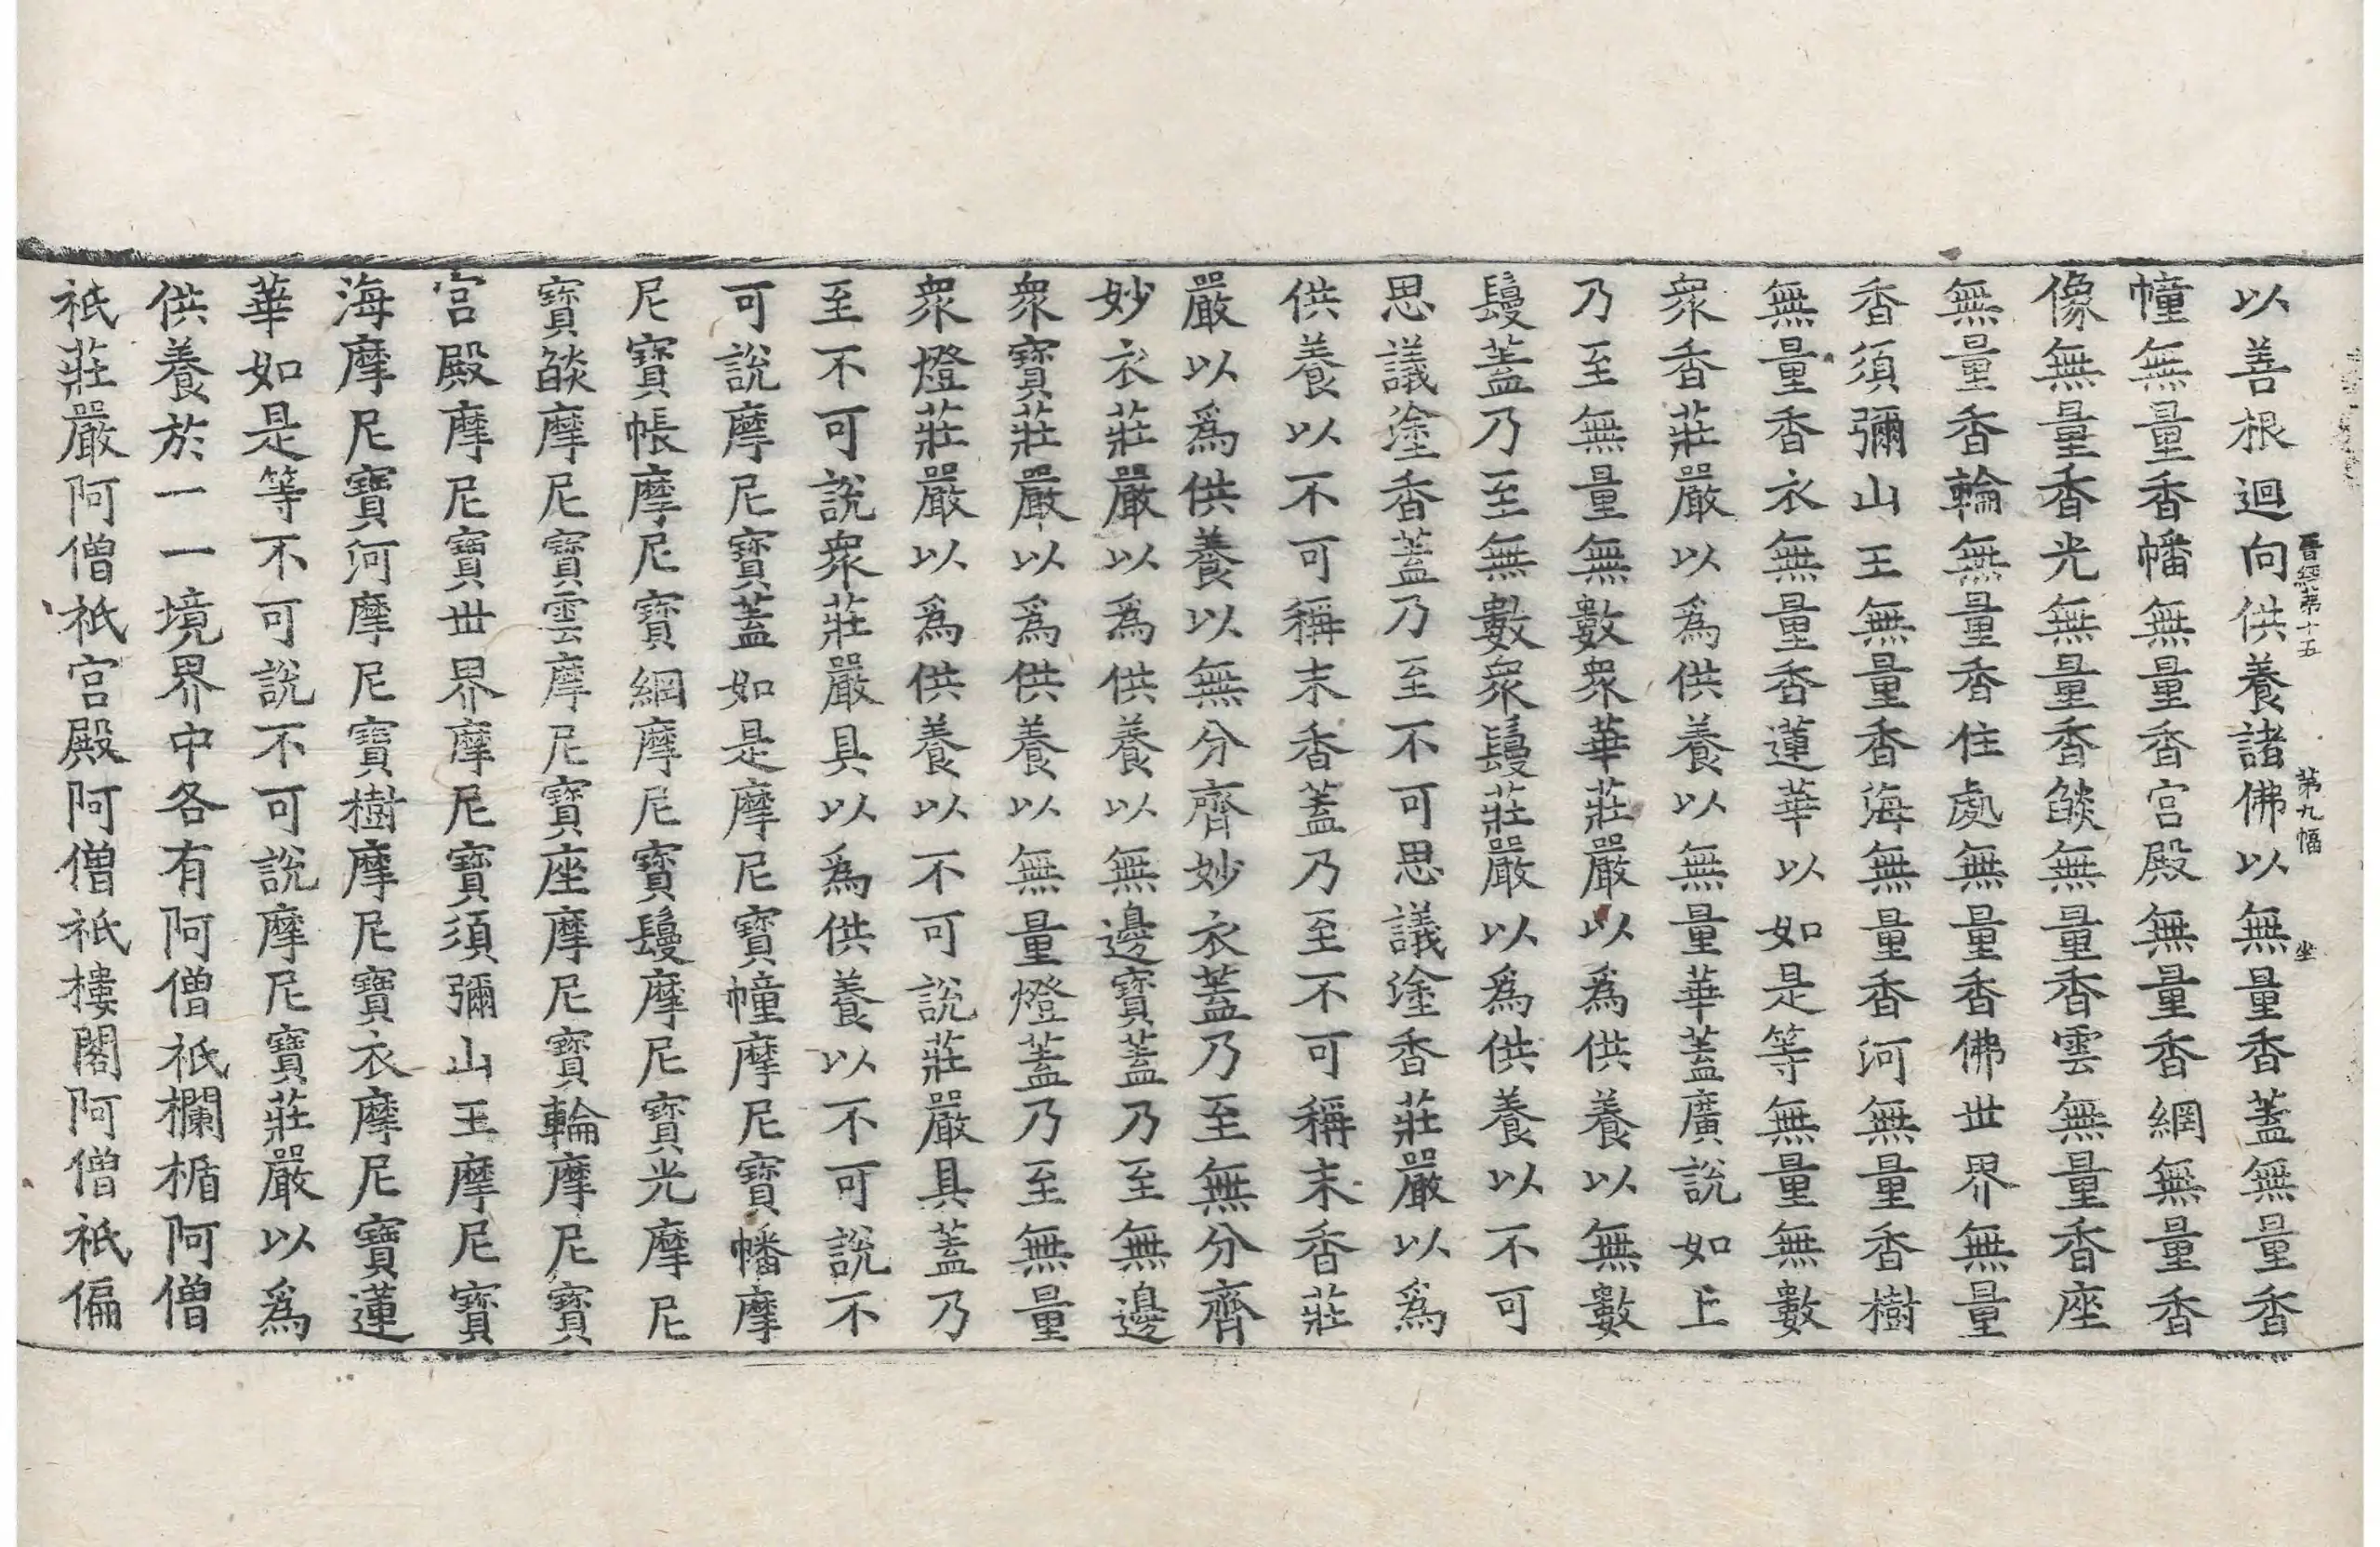 以善根迴向供養諸佛以無量香蓋無量香
晉經第十五 第九幅 坐
幢無量香幡無量香宮殿無量香網無量香
像無量香光無量香𦦨無量香雲無量香座
無量香輪無量香住處無量香佛世界無量
香須彌山王無量香海無量香河無量香樹
無量香衣無量香蓮華以如是等無量無數
衆香莊嚴以爲供養以無量華蓋廣說如上
乃至無量無數衆華莊嚴以爲供養以無數
鬘蓋乃至無數衆鬘莊嚴以爲供養以不可
思議塗香蓋乃至不可思議塗香莊嚴以爲
供養以不可稱末香蓋乃至不可稱末香莊
嚴以爲供養以無分齊妙衣蓋乃至無分齊
妙衣莊嚴以爲供養以無邊寶蓋乃至無邊
衆寶莊嚴以爲供養以無量燈蓋乃至無量
衆燈莊嚴以爲供養以不可說莊嚴具蓋乃
至不可說衆莊嚴具以爲供養以不可說不
可說摩尼寶蓋如是摩尼寶幢摩尼寶幡摩
尼寶帳摩尼寶網摩尼寶鬘摩尼寶光摩尼
寶𦦨摩尼寶雲摩尼寶座摩尼寶輪摩尼寶
宮殿摩尼寶世界摩尼寶須彌山王摩尼寶
海摩尼寶河摩尼寶樹摩尼寶衣摩尼寶蓮
華如是等不可說不可說摩尼寶莊嚴以爲
供養於一一境界中各有阿僧祇欄楯阿僧
祇莊嚴阿僧祇宮殿阿僧祇樓閣阿僧祇偏